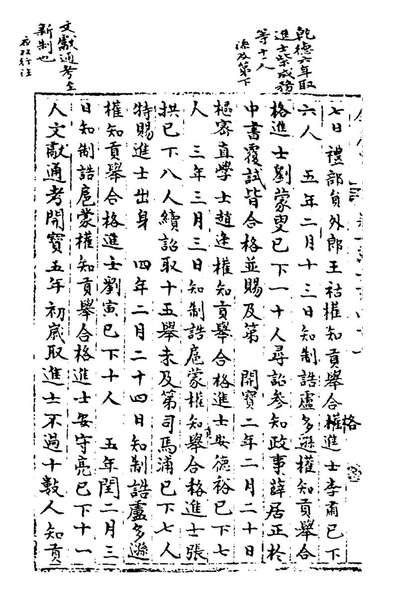 乾德六年取
進士柴成務
等十人
添及第下
文獻通考至
新制也
格
七日 禮部員外郎王祜權知貢舉合權進士李肅已下
六人 五年二月十三日知制誥盧多遜權知貢舉合
格進士劉蒙叟已下一十人尋詔參知政事薛居正於
中書覆試皆合格並賜及第 開寶二年二月二十日
樞密直學士趙逢權知貢舉合格進士安德裕已下七
人 三年三月三日知制誥扈蒙權知舉合格進士張
拱已下八人續詔取十五舉未及第司馬浦已下七人
特賜進士出身 四年二月二十四日知制誥盧多遜
權知貢舉合格進士劉寅已下十人 五年閏二月三
日知制誥扈蒙權知貢舉合格進士安守亮已下十一
人文獻通考開寶五年初歲取進士不過十數人知貢